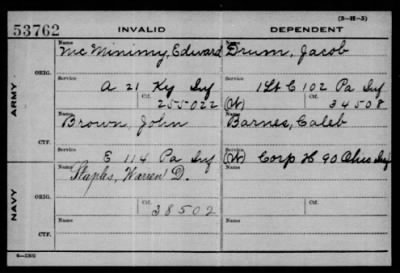 (3-H-3)
53762 INVALID DEPENDENT
Name Name
McMinimy, Edward Drum, Jacob
ORIG. Service Service
A 21 Ky Inf 1 Lt C 102 Pa Inf
Ctf. Ctf.
255022 (W) 34508
ARMY
Name Name
Brown, John Barnes, Caleb
CTF. Service Service
E 114 Pa Inf (W) Corp H 90 Ohio Inf
Name Name
Staples, Warren D.
ORIG. Ctf. Ctf.
38502
NAVY
Name Name
CTF.